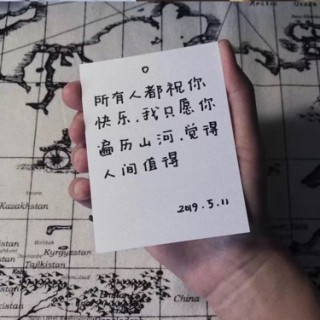 所有人都祝你
快乐.我只愿你
遍历山河.觉得
人间值得
2019.5.11
Kazakhstan
Bishkek
Kyrgyzstan
Tajikistan
China